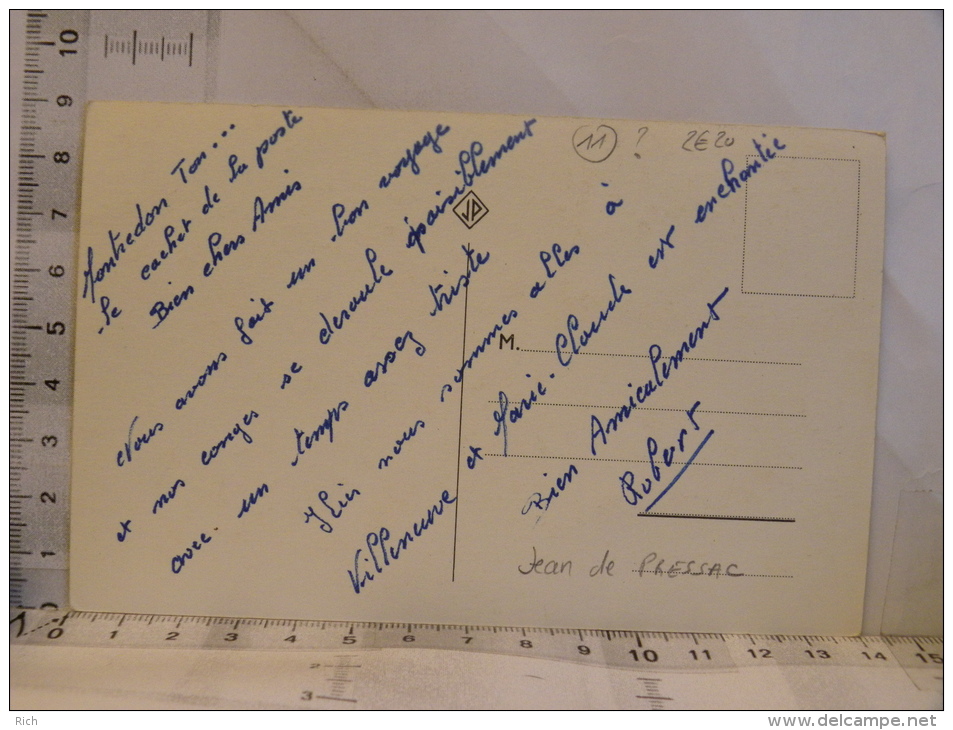 Montredon
le cachet de la poste
Bien chers Amis
Nous avons fait un bon voyage
et nos conges se deroule paisiblement
avec un temps assez triste
Hier nous sommes allés à
Villeneuve et Marie-Claude est enchantée
Bien Amicalement
Robert
11 ? 2E20
M.
Jean de PRESSAC
10
9
8
7
6
5
4
3
2
1
0
0 1 2 3 4 5 6 7 8 9 10 11 12 13 14 15
2
3
Rich
http://www.delcampe.net